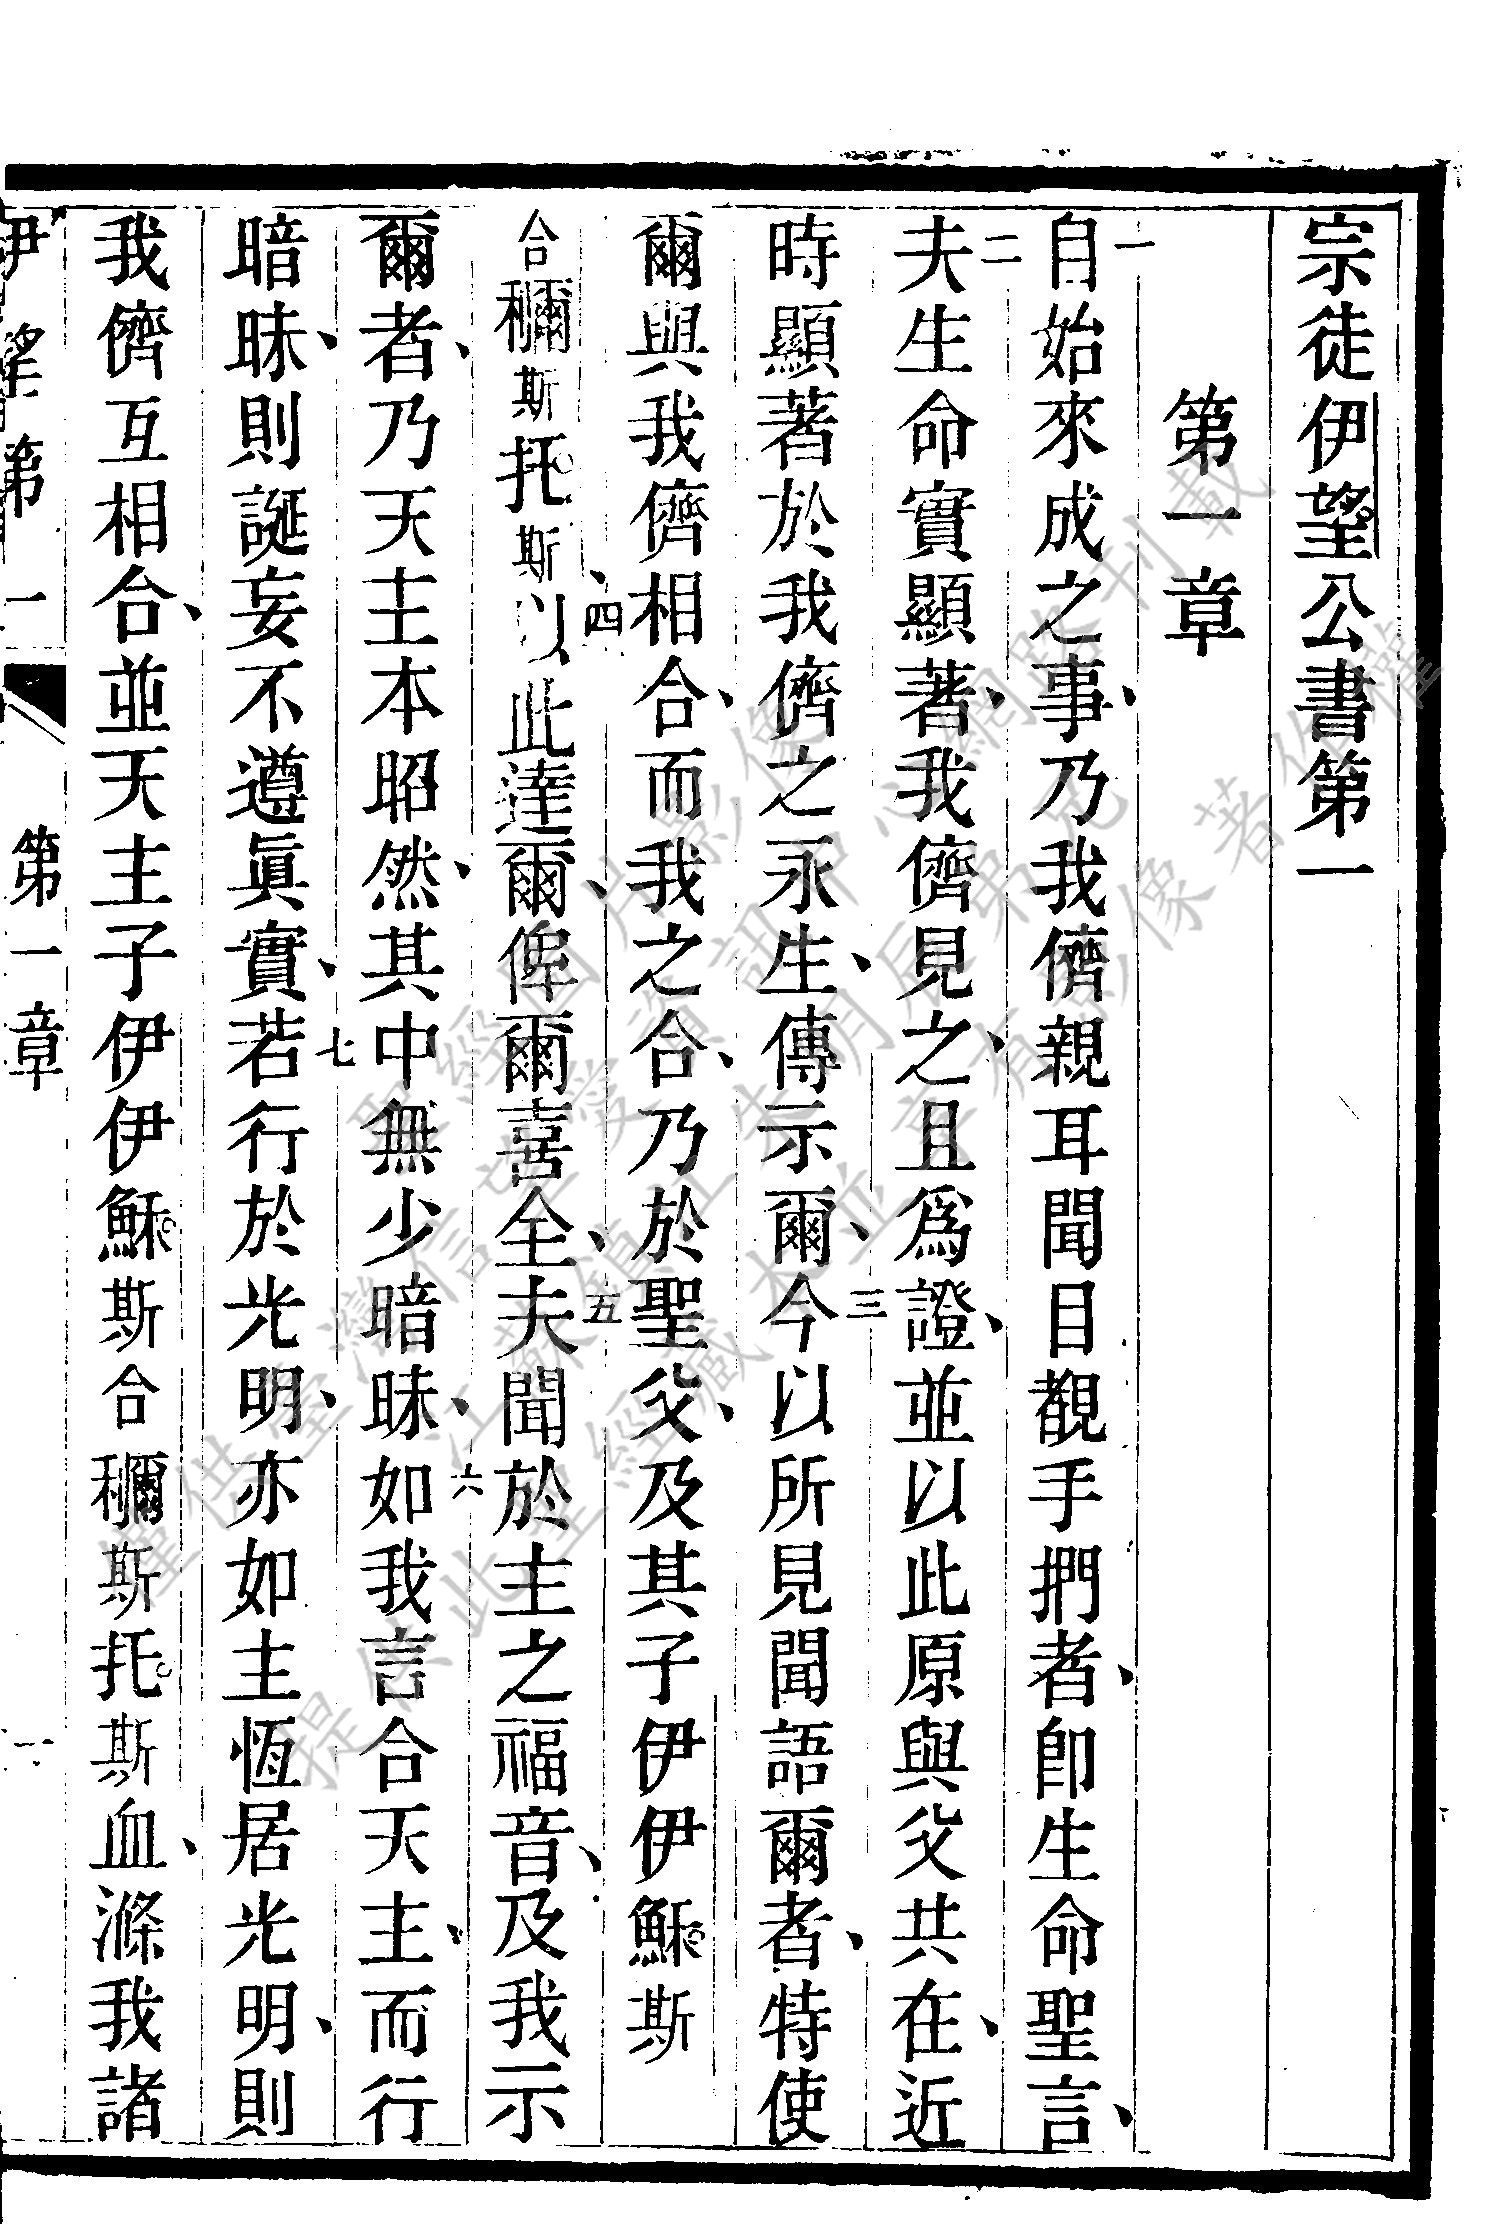 宗徒伊望公書第一
第一章
一自始來成之事、乃我儕親耳聞目覩手捫者、卽生命聖言、
二夫生命實顯著、我儕見之、且爲證、並以此原與父共在、近
時顯著於我儕之永生、傳示爾、三今以所見聞語爾者、特使
爾與我儕相合、而我之合、乃於聖父、及其子伊伊穌斯
合穪斯托斯、四以此達爾、俾爾喜全、五夫聞於主之福音、及我示
爾者、乃天主本昭然、其中無少暗昧、六如我言合天主、而行
暗昧、則誕妄不遵眞實、七若行於光明、亦如主恆居光明、則
我儕互相合、並天主子伊伊穌斯合穪斯托斯血、滌我諸
伊望第一 第一章 一